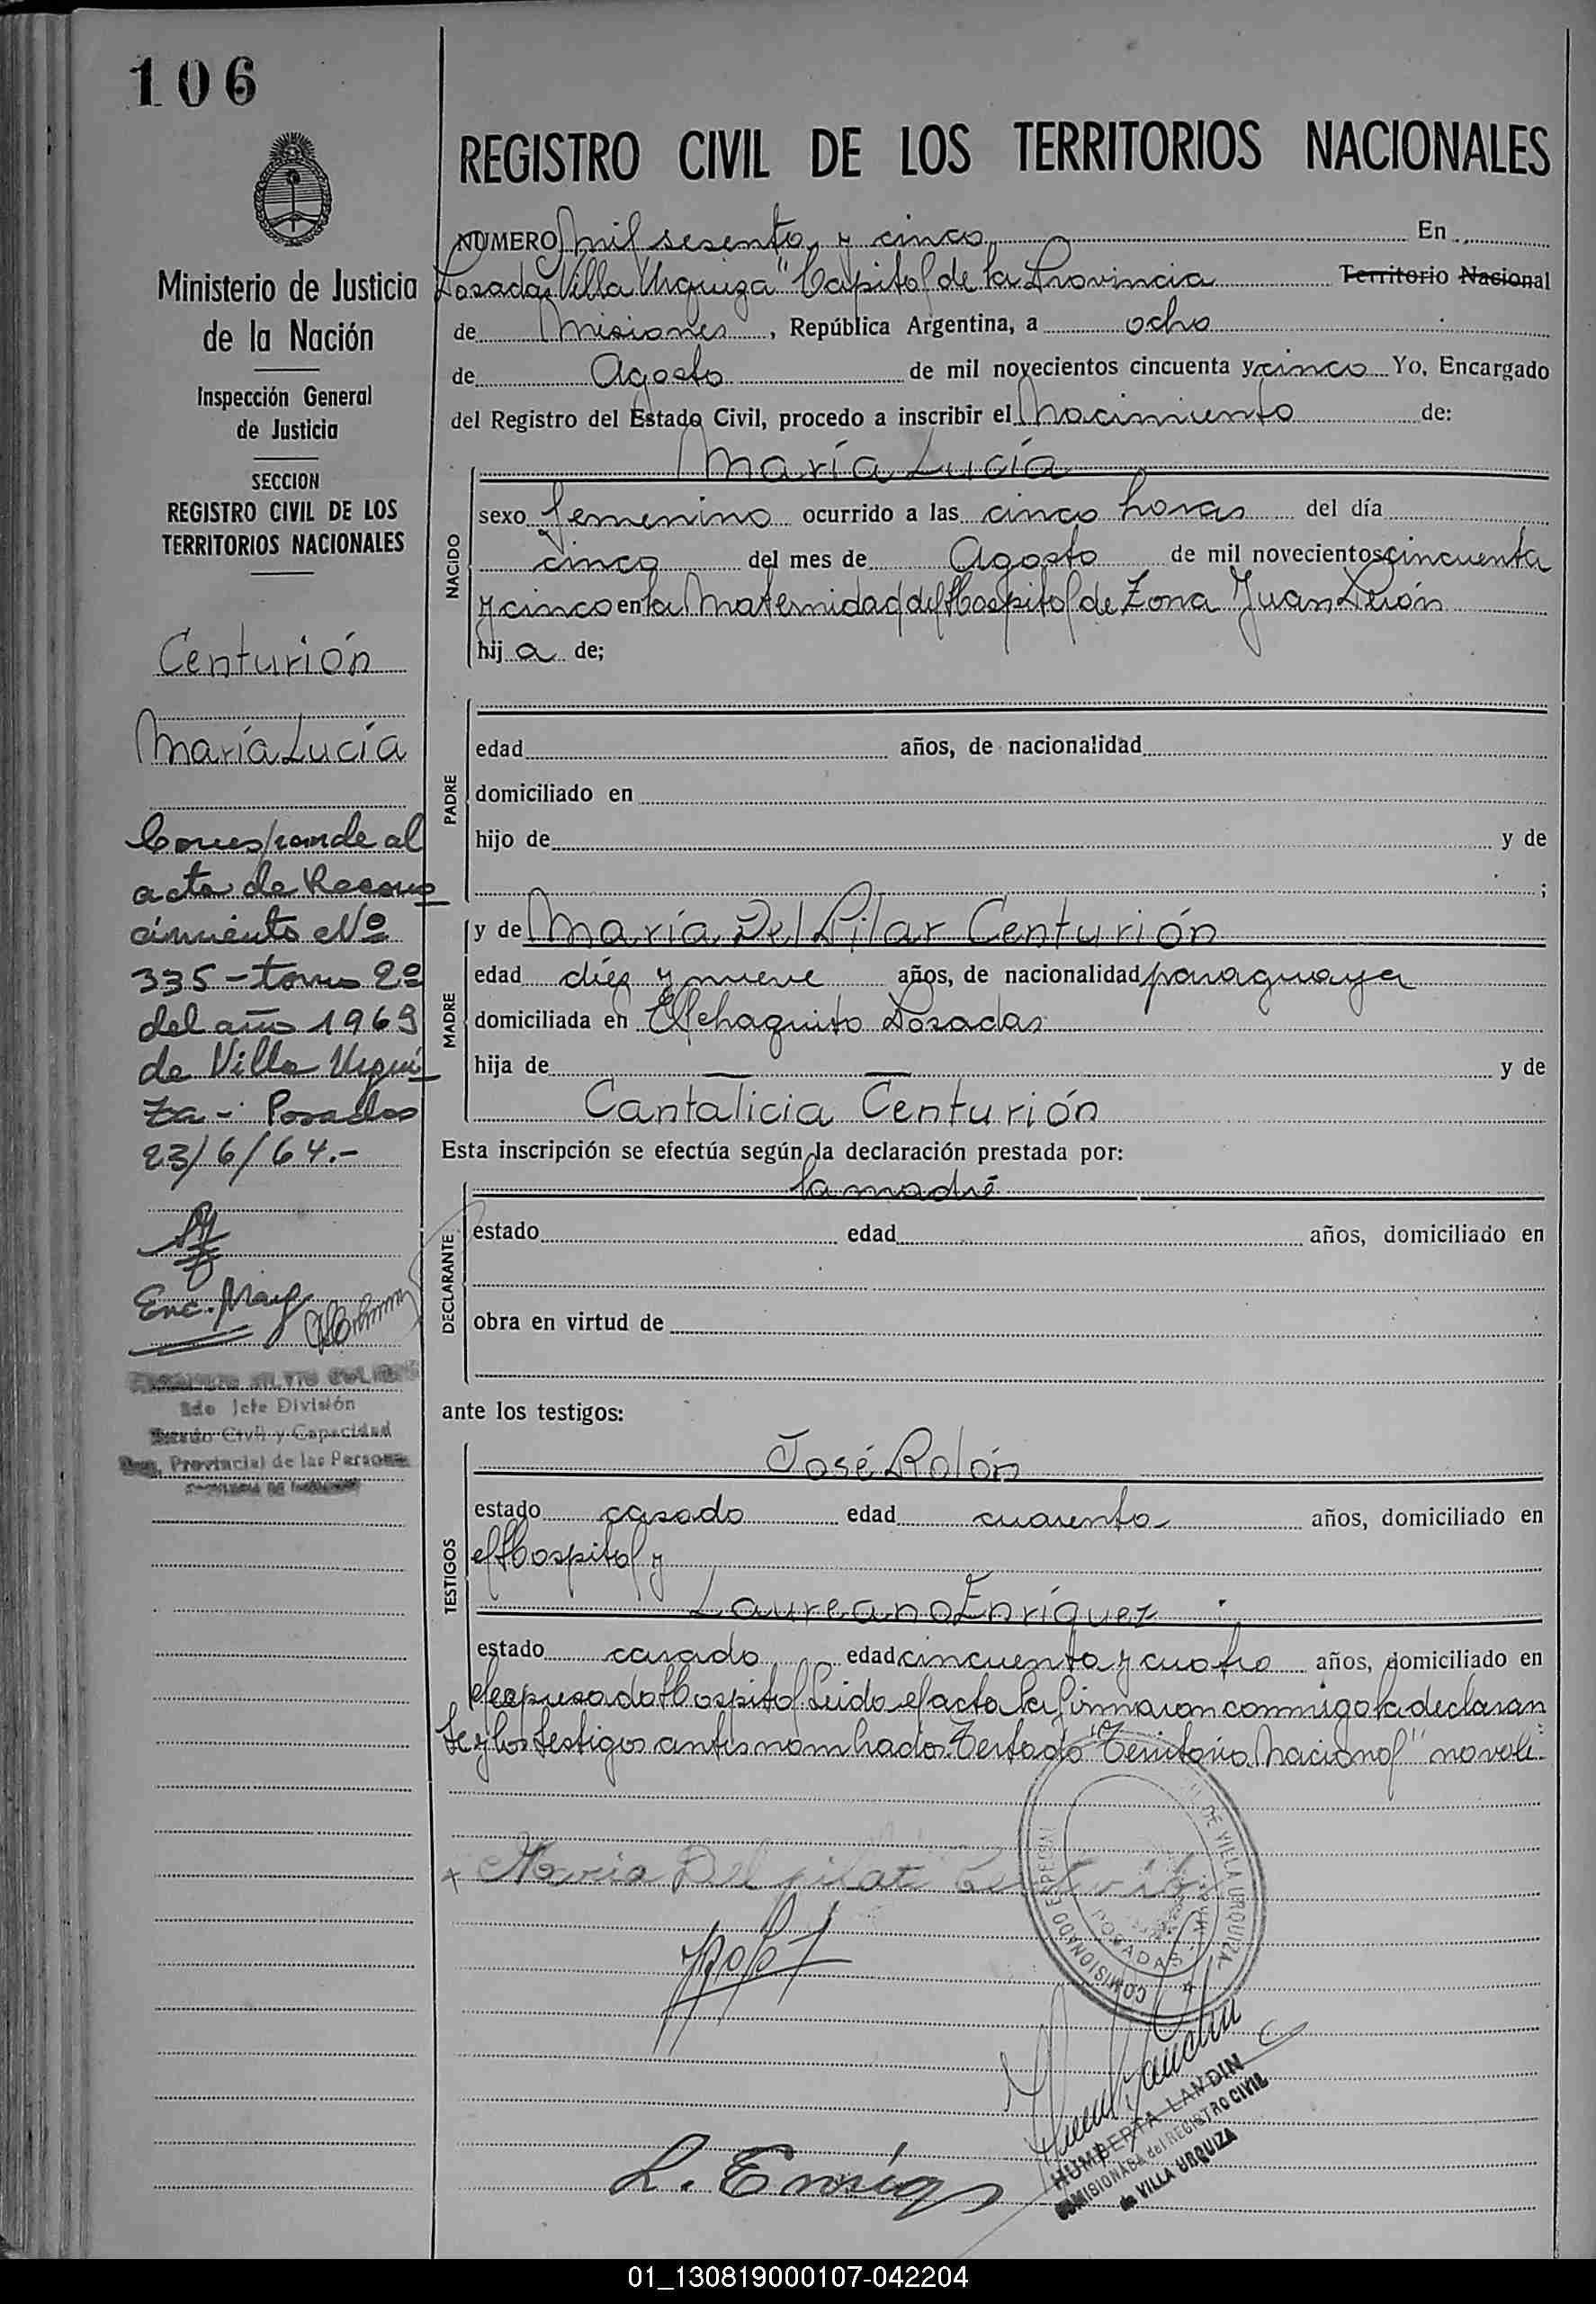 106
Ministerio de Justicia
de la Nación
Inspección General
de Justicia
SECCION
REGISTRO CIVIL DE LOS
TERRITORIOS NACIONALES
Centurión
María Lucía
Corresponde al
acta de Recono
cimiento Nº
335 - tomo 2º
del año 1969
de Villa Urqui
za - Posadas
23/6/64.-
Enc. Marg
2do Jefe División
Estado Civil y Capacidad
Provincial de las Personas
REGISTRO CIVIL DE LOS TERRITORIOS NACIONALES
NUMERO mil sesenta y cinco En
Posadas "Villa Urquiza" Capital de la Provincia Territorio Nacional
de Misiones, República Argentina, a ocho
de Agosto de mil novecientos cincuenta y cinco Yo, Encargado
del Registro del Estado Civil, procedo a inscribir el nacimiento de:
NACIDO
María Lucía
sexo femenino ocurrido a las cinco horas del día
cinco del mes de Agosto de mil novecientos cincuenta
y cinco en la Maternidad del Hospital de Zona Juan Perón
hija de;
PADRE
edad años, de nacionalidad
domiciliado en
hijo de y de
;
MADRE
y de María Del Pilar Centurión
edad diez y nueve años, de nacionalidad paraguaya
domiciliada en El chaquito Posadas
hija de y de
Cantalicia Centurión
Esta inscripción se efectúa según la declaración prestada por:
DECLARANTE
la madre
estado edad años, domiciliado en
obra en virtud de
ante los testigos:
TESTIGOS
José Rolón
estado casado edad cuarenta años, domiciliado en
el Hospital y
Laureano Enríquez
estado casado edad cincuenta y cuatro años, domiciliado en
el expresado Hospital. Leida el acta la firmaron conmigo la declaran
te y los testigos antes nombrados. Testado "Territorio Nacional" no vale.
x Maria Del pilar Centurión
COMISIONADO ESPECIAL DE VILLA URQUIZA
POSADAS
HUMBERTA LANDIN
COMISIONADA del REGISTRO CIVIL
de VILLA URQUIZA
L. Enriq
01_130819000107-042204